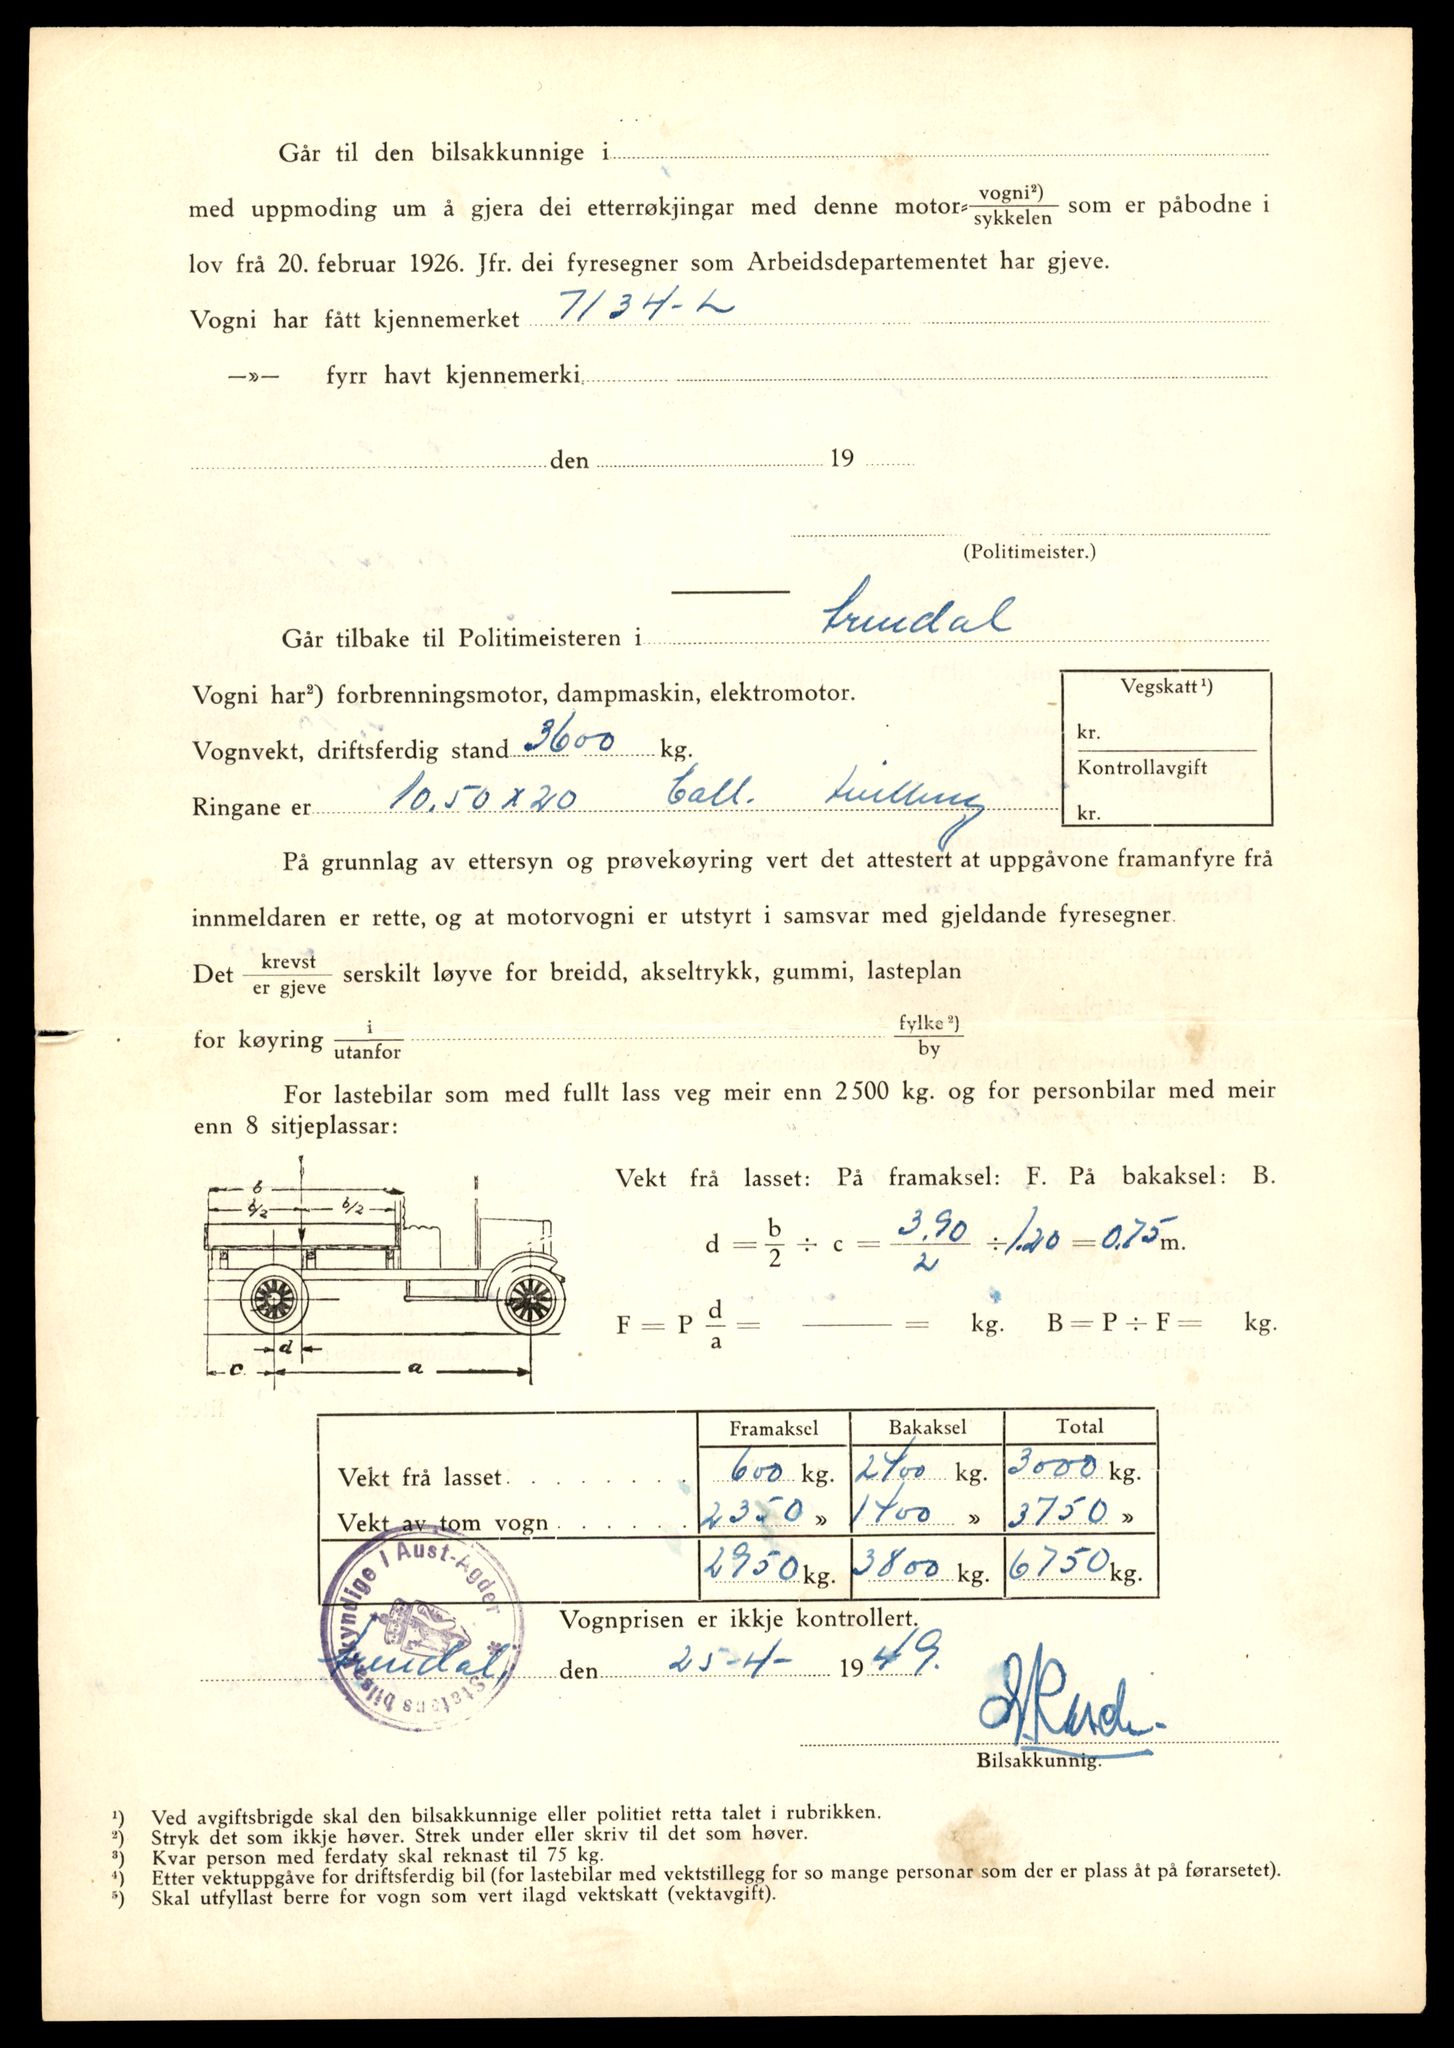 Går til den bilsakkunnige i
med uppmoding um å gjera dei etterrøkjingar med denne motor- vogni²) / sykkelen som er påbodne i
lov frå 20. februar 1926. Jfr. dei fyresegner som Arbeidsdepartementet har gjeve.
Vogni har fått kjennemerket 7134-L
—»— fyrr havt kjennemerki
den 19
(Politimeister.)
Går tilbake til Politimeisteren i Arendal
Vogni har²) forbrenningsmotor, dampmaskin, elektromotor.
Vegskatt ¹)
kr.
Vognvekt, driftsferdig stand 3600 kg.
Kontrollavgift
kr.
Ringane er 10.50 x 20 tvilling
På grunnlag av ettersyn og prøvekøyring vert det attestert at uppgåvone framanfyre frå
innmeldaren er rette, og at motorvogni er utstyrt i samsvar med gjeldande fyresegner.
Det krevst / er gjeve serskilt løyve for breidd, akseltrykk, gummi, lasteplan
for køyring i / utanfor fylke ²) / by
For lastebilar som med fullt lass veg meir enn 2500 kg. og for personbilar med meir
enn 8 sitjeplassar:
b
b/2 b/2
d
c a
Vekt frå lasset: På framaksel: F. På bakaksel: B.
d = b/2 ÷ c = 3.90/2 ÷ 1.20 = 0.75 m.
F = P d/a = —— = kg. B = P ÷ F = kg.
Framaksel Bakaksel Total
Vekt frå lasset 600 kg. 2400 kg. 3000 kg.
Vekt av tom vogn 2350 » 1400 » 3750 »
2950 kg. 3800 kg. 6750 kg.
Statens bilsakkyndige i Aust-Agder
Vognprisen er ikkje kontrollert.
Arendal, den 25-4- 1949.
Bilsakkunnig.
¹) Ved avgiftsbrigde skal den bilsakkunnige eller politiet retta talet i rubrikken.
²) Stryk det som ikkje høver. Strek under eller skriv til det som høver.
³) Kvar person med ferdaty skal reknast til 75 kg.
⁴) Etter vektuppgåve for driftsferdig bil (for lastebilar med vektstillegg for so mange personar som der er plass åt på førarsetet).
⁵) Skal utfyllast berre for vogn som vert ilagd vektskatt (vektavgift).